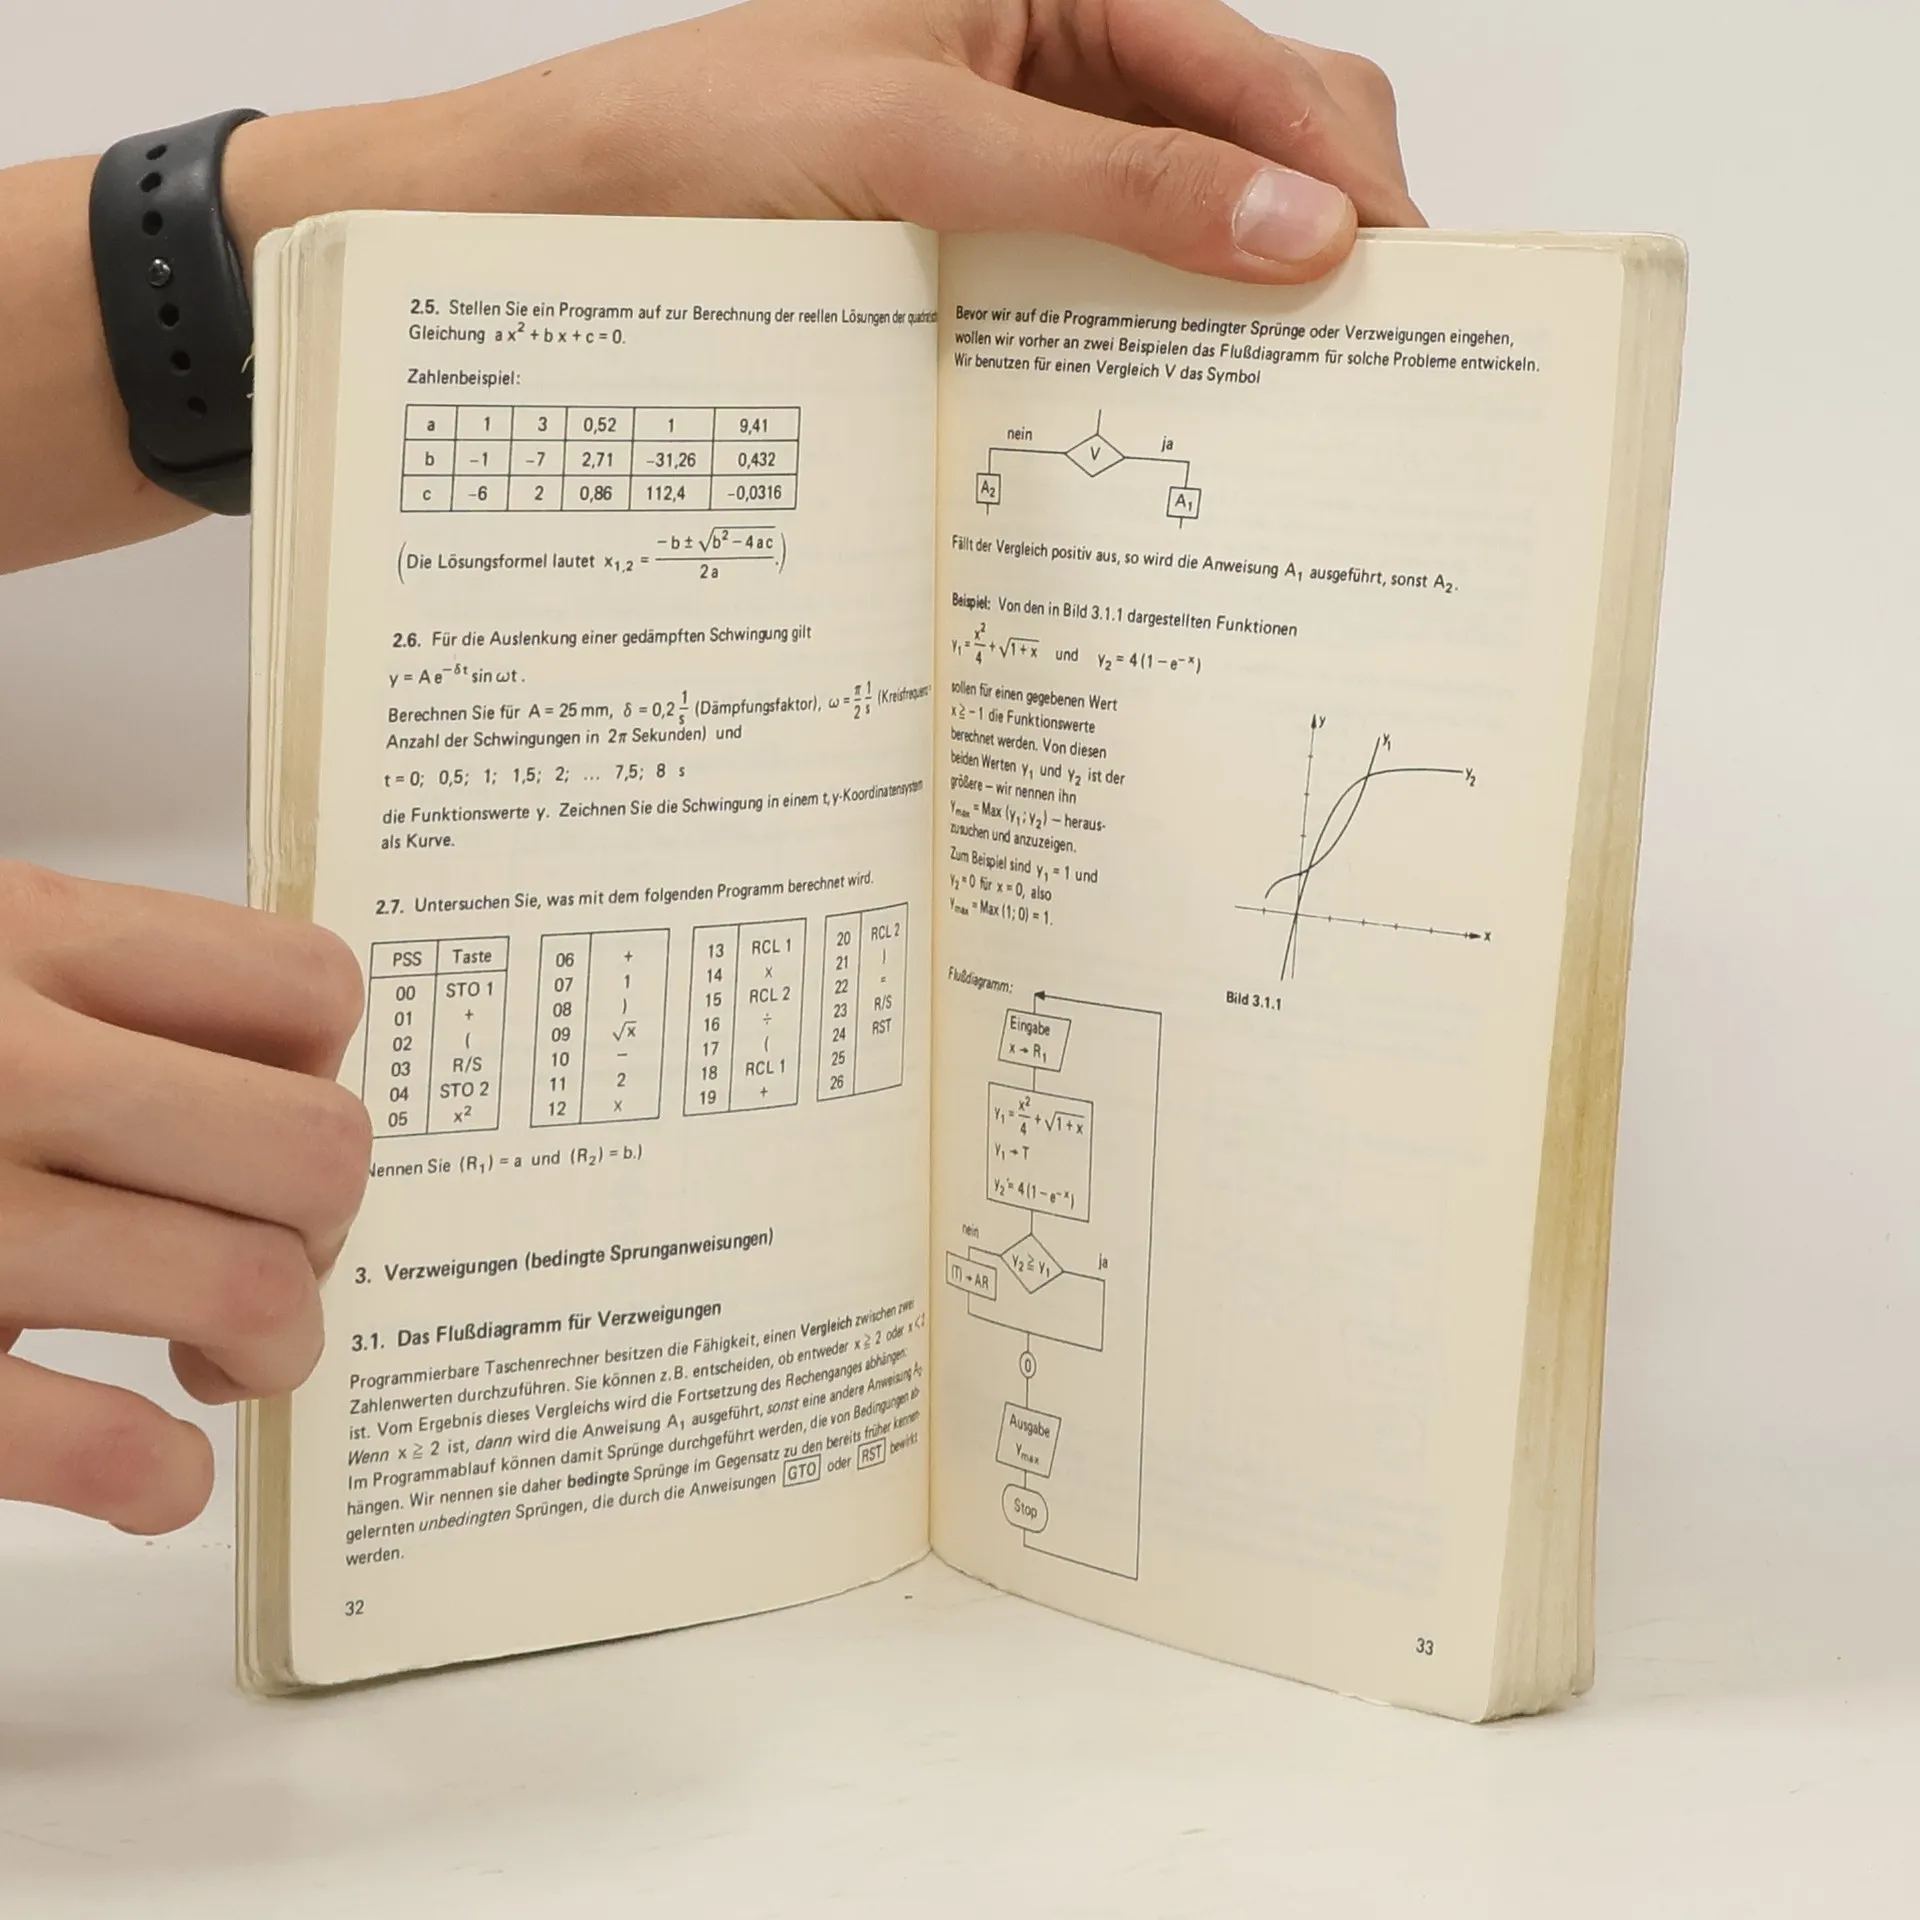 2.5. Stellen Sie ein Programm auf zur Berechnung der reellen Lösungen der
Gleichung a x² + b x + c = 0.
Zahlenbeispiel:
a 1 3 0,52 1 9,41
b -1 -7 2,71 -31,26 0,432
c -6 2 0,86 112,4 -0,0316
(Die Lösungsformel lautet x₁,₂ = (-b ± √(b² - 4 ac)) / 2 a .)
2.6. Für die Auslenkung einer gedämpften Schwingung gilt
y = A e^(-δt) sin ωt .
Berechnen Sie für A = 25 mm, δ = 0,2 1/s (Dämpfungsfaktor), ω = π/2 1/s (Kreisfrequenz
Anzahl der Schwingungen in 2π Sekunden) und
t = 0; 0,5; 1; 1,5; 2; ... 7,5; 8 s
die Funktionswerte y. Zeichnen Sie die Schwingung in einem t, y-Koordinatensystem
als Kurve.
2.7. Untersuchen Sie, was mit dem folgenden Programm berechnet wird.
PSS Taste
00 STO 1
01 +
02 (
03 R/S
04 STO 2
05 x²
06 +
07 1
08 )
09 √x
10 −
11 2
12 x
13 RCL 1
14 x
15 RCL 2
16 ÷
17 (
18 RCL 1
19 +
20 RCL 2
21 )
22 =
23 R/S
24 RST
25
26
Nennen Sie (R₁) = a und (R₂) = b.)
3. Verzweigungen (bedingte Sprunganweisungen)
3.1. Das Flußdiagramm für Verzweigungen
Programmierbare Taschenrechner besitzen die Fähigkeit, einen Vergleich zwischen zwei
Zahlenwerten durchzuführen. Sie können z. B. entscheiden, ob entweder x ≧ 2 oder x < 2
ist. Vom Ergebnis dieses Vergleichs wird die Fortsetzung des Rechenganges abhängen:
Wenn x ≧ 2 ist, dann wird die Anweisung A₁ ausgeführt, sonst eine andere Anweisung A₂
Im Programmablauf können damit Sprünge durchgeführt werden, die von Bedingungen ab-
hängen. Wir nennen sie daher bedingte Sprünge im Gegensatz zu den bereits früher kennen-
gelernten unbedingten Sprüngen, die durch die Anweisungen GTO oder RST bewirkt
werden.
32
Bevor wir auf die Programmierung bedingter Sprünge oder Verzweigungen eingehen,
wollen wir vorher an zwei Beispielen das Flußdiagramm für solche Probleme entwickeln.
Wir benutzen für einen Vergleich V das Symbol
nein V ja
A₂ A₁
Fällt der Vergleich positiv aus, so wird die Anweisung A₁ ausgeführt, sonst A₂.
Beispiel: Von den in Bild 3.1.1 dargestellten Funktionen
y₁ = x²/4 + √(1 + x) und y₂ = 4 (1 − e^(−x))
sollen für einen gegebenen Wert
x ≧ −1 die Funktionswerte
berechnet werden. Von diesen
beiden Werten y₁ und y₂ ist der
größere – wir nennen ihn
Ymax = Max (y₁; y₂) – heraus-
zusuchen und anzuzeigen.
Zum Beispiel sind y₁ = 1 und
y₂ = 0 für x = 0, also
Ymax = Max (1; 0) = 1.
y
y₁
y₂
x
Bild 3.1.1
Flußdiagramm:
Eingabe
x → R₁
y₁ = x²/4 + √(1 + x)
y₁ → T
y₂ = 4 (1 − e^(−x))
nein y₂ ≧ y₁ ja
(T) → AR
0
Ausgabe
Ymax
Stop
33